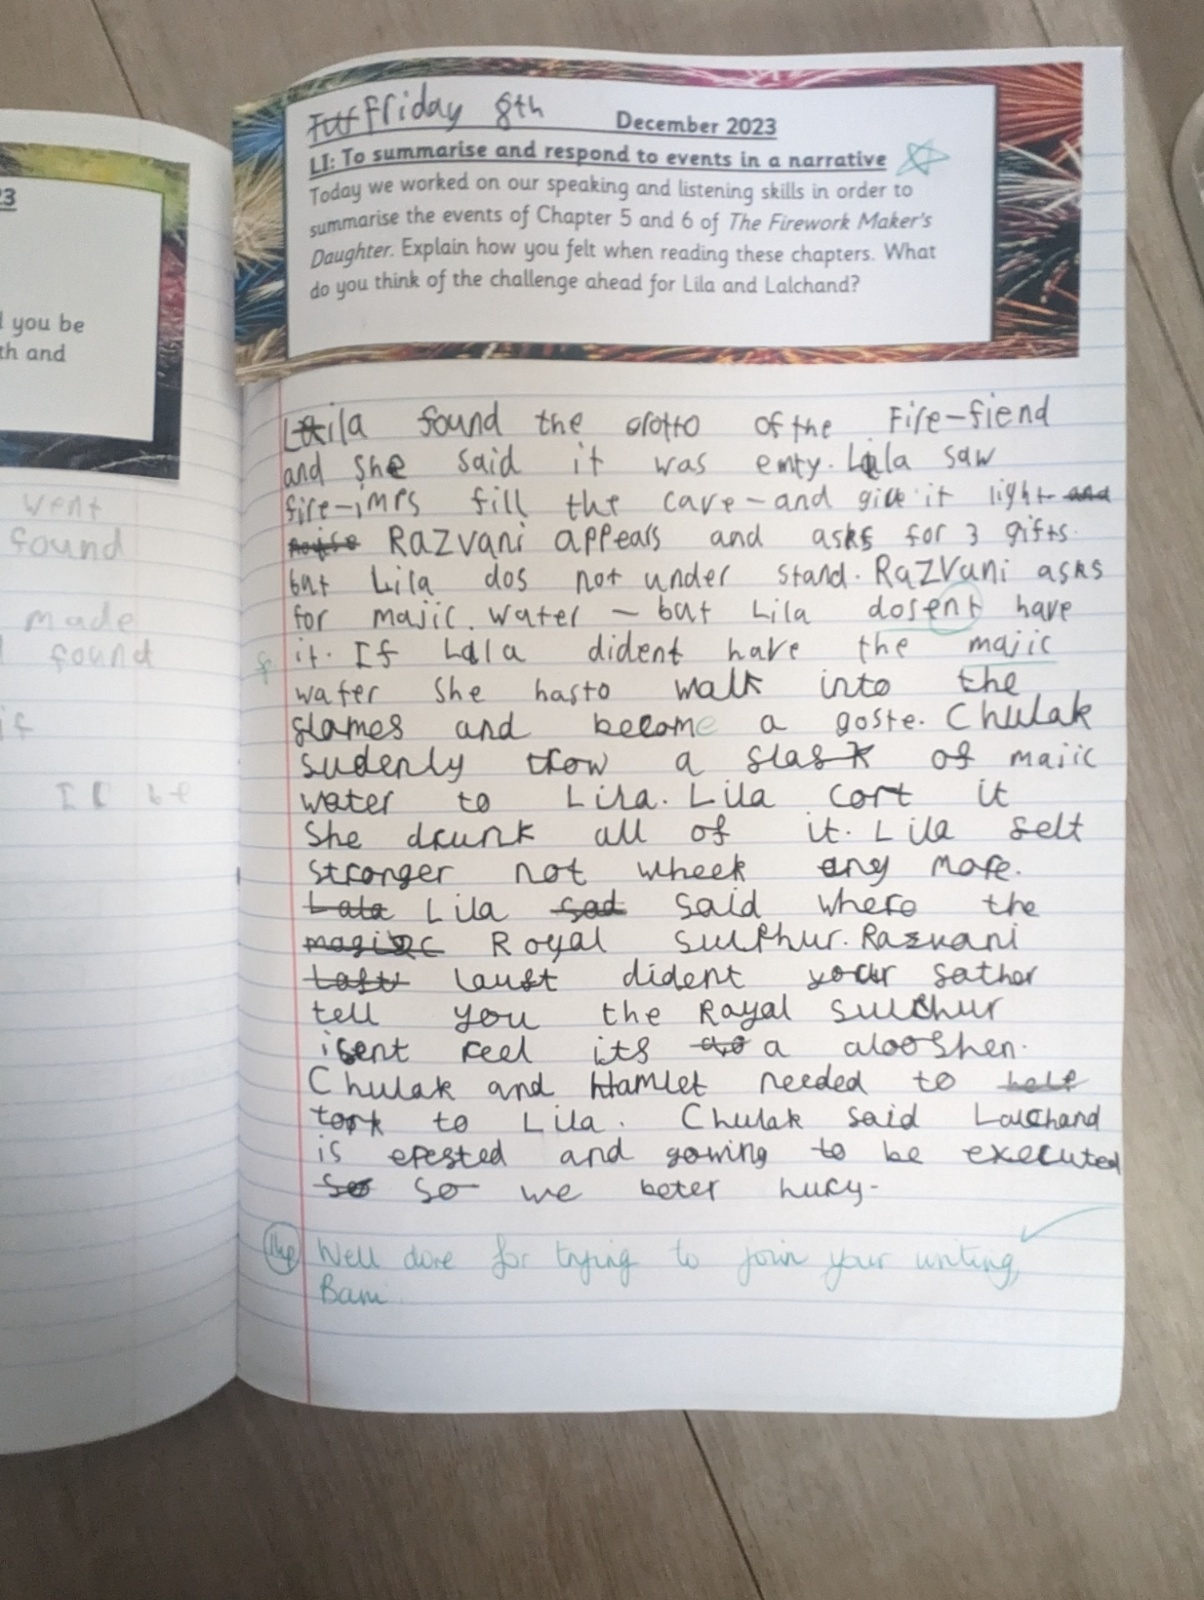 3
l you be
th and
went
found
made
found
if
Friday 8th December 2023
LI: To summarise and respond to events in a narrative
Today we worked on our speaking and listening skills in order to
summarise the events of Chapter 5 and 6 of The Firework Maker's
Daughter. Explain how you felt when reading these chapters. What
do you think of the challenge ahead for Lila and Lalchand?
Lila found the grotto of the Fire-fiend
and she said it was emty. Lila saw
fire-imps fill the cave - and give it light and
Razvani appears and asks for 3 gifts.
but Lila dos not under stand. Razvani asks
for majic water - but Lila dosent have
it. If Lila dident have the majic
water she hasto walk into the
flames and become a goste. Chulak
sudenly throw a flask of majic
water to Lila. Lila cort it
she drunk all of it. Lila felt
stronger not wheek any more.
Lala Lila sad said where the
Royal sulphur. Razvani
laust dident your father
tell you the Royal sulchur
isent reel its a alooshen.
Chulak and Hamlet needed to help
tork to Lila. Chulak said Lalchand
is erested and gowing to be executed
so so we beter hury.
Well done for trying to join your writing,
Bani